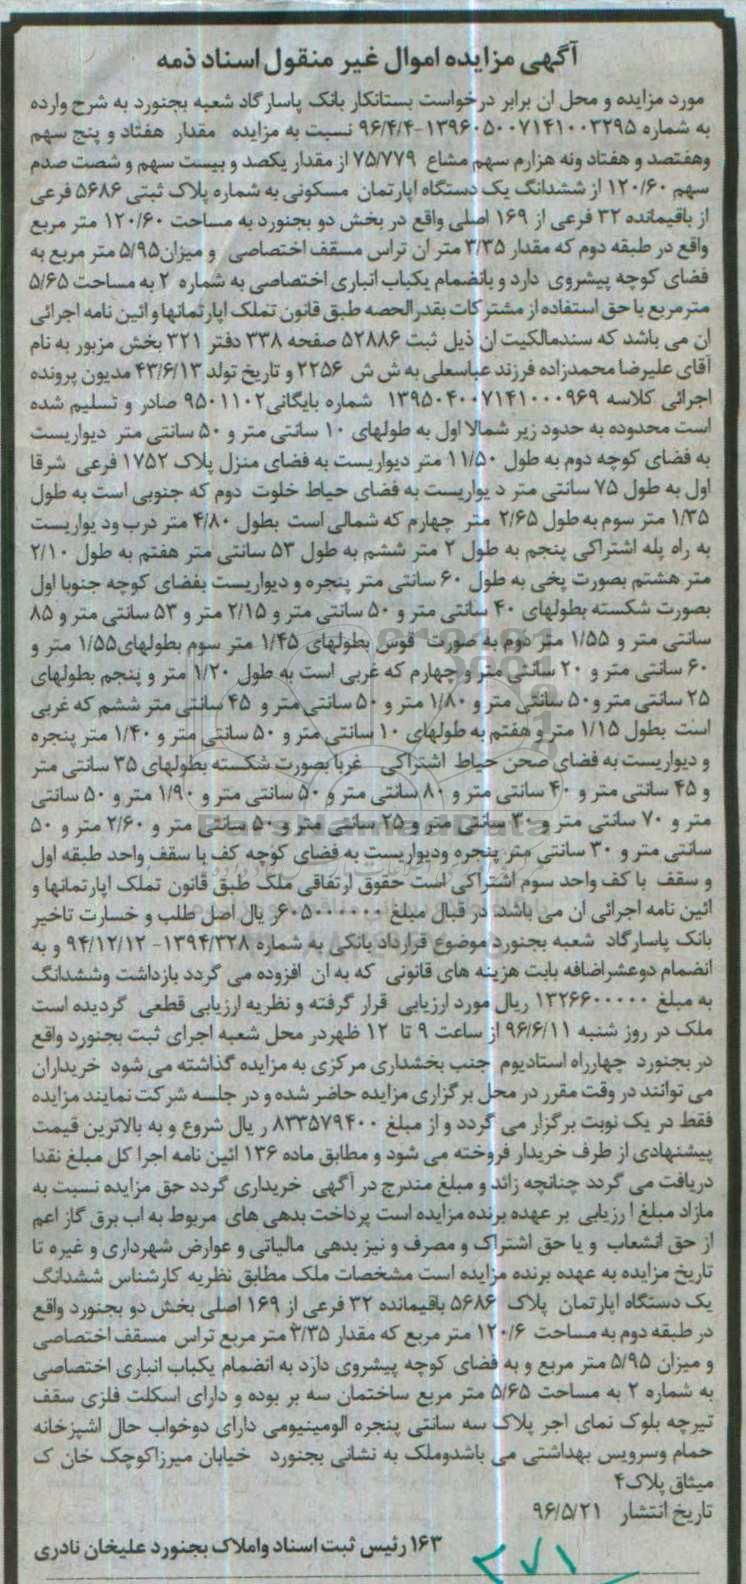 آگهی مزایده اموال غیر منقول اسناد ذمه
مورد مزایده و محل ان برابر درخواست بستانکار بانک پاسارگاد شعبه بجنورد به شرح وارده
به شماره ۱۳۹۶۰۵۰۰۷۱۴۱۰۰۳۲۹۵-۹۶/۴/۴ نسبت به مزایده مقدار هفتاد و پنج سهم
وهفتصد و هفتاد ونه هزارم سهم مشاع ۷۵/۷۷۹ از مقدار یکصد و بیست سهم و شصت صدم
سهم ۱۲۰/۶۰ از ششدانگ یک دستگاه اپارتمان مسکونی به شماره پلاک ثبتی ۵۶۸۶ فرعی
از باقیمانده ۳۲ فرعی از ۱۶۹ اصلی واقع در بخش دو بجنورد به مساحت ۱۲۰/۶۰ متر مربع
واقع در طبقه دوم که مقدار ۳/۳۵ متر ان تراس مسقف اختصاصی و میزان۵/۹۵ متر مربع به
فضای کوچه پیشروی دارد و بانضمام یکباب انباری اختصاصی به شماره ۲ به مساحت ۵/۶۵
مترمربع با حق استفاده از مشترکات بقدرالحصه طبق قانون تملک اپارتمانها و ائین نامه اجرائی
ان می باشد که سندمالکیت ان ذیل ثبت ۵۲۸۸۶ صفحه ۳۳۸ دفتر ۳۲۱ بخش مزبور به نام
آقای علیرضا محمدزاده فرزند عباسعلی به ش ش ۲۲۵۶ و تاریخ تولد ۴۳/۶/۱۳ مدیون پرونده
اجرائی کلاسه ۱۳۹۵۰۴۰۰۷۱۴۱۰۰۰۹۶۹ شماره بایگانی۹۵۰۱۱۰۲ صادر و تسلیم شده
است محدوده به حدود زیر شمالا اول به طولهای ۱۰ سانتی متر و ۵۰ سانتی متر دیواریست
به فضای کوچه دوم به طول ۱۱/۵۰ متر دیواریست به فضای منزل پلاک ۱۷۵۲ فرعی شرقا
اول به طول ۷۵ سانتی متر د یواریست به فضای حیاط خلوت دوم که جنوبی است به طول
۱/۳۵ متر سوم به طول ۲/۶۵ متر چهارم که شمالی است بطول ۴/۸۰ متر درب ود یواریست
به راه پله اشتراکی پنجم به طول ۲ متر ششم به طول ۵۳ سانتی متر هفتم به طول ۲/۱۰
متر هشتم بصورت پخی به طول ۶۰ سانتی متر پنجره و دیواریست بفضای کوچه جنوبا اول
بصورت شکسته بطولهای ۴۰ سانتی متر و ۵۰ سانتی متر و ۲/۱۵ متر و ۵۳ سانتی متر و ۸۵
سانتی متر و ۱/۵۵ متر دوم به صورت قوس بطولهای ۱/۴۵ متر سوم بطولهای۱/۵۵ متر و
۶۰ سانتی متر و ۲۰ سانتی متر و چهارم که غربی است به طول ۱/۲۰ متر و پنجم بطولهای
۲۵ سانتی متر و۵۰ سانتی متر و ۱/۸۰ متر و ۵۰ سانتی متر و ۴۵ سانتی متر ششم که غربی
است بطول ۱/۱۵ متر و هفتم به طولهای ۱۰ سانتی متر و ۵۰ سانتی متر و ۱/۴۰ متر پنجره
و دیواریست به فضای صحن حیاط اشتراکی غربا بصورت شکسته بطولهای ۳۵ سانتی متر
و ۴۵ سانتی متر و ۴۰ سانتی متر و ۸۰ سانتی متر و ۵۰ سانتی متر و ۱/۹۰ متر و ۵۰ سانتی
متر و ۷۰ سانتی متر و ۳۰ سانتی متر و ۲۵ سانتی متر و ۵۰ سانتی متر و ۲/۶۰ متر و ۵۰
سانتی متر و ۳۰ سانتی متر پنجره ودیواریست به فضای کوچه کف با سقف واحد طبقه اول
و سقف با کف واحد سوم اشتراکی است حقوق ارتفاقی ملک طبق قانون تملک اپارتمانها و
ائین نامه اجرائی ان می باشد. در قبال مبلغ ۶۰۵۰۰۰۰۰۰ر یال اصل طلب و خسارت تاخیر
بانک پاسارگاد شعبه بجنورد موضوع قرارداد بانکی به شماره ۱۳۹۴/۳۲۸- ۹۴/۱۲/۱۲ و به
انضمام دوعشراضافه بابت هزینه های قانونی که به ان افزوده می گردد بازداشت وششدانگ
به مبلغ ۱۳۲۶۶۰۰۰۰۰ ریال مورد ارزیابی قرار گرفته و نظریه ارزیابی قطعی گردیده است
ملک در روز شنبه ۹۶/۶/۱۱ از ساعت ۹ تا ۱۲ ظهردر محل شعبه اجرای ثبت بجنورد واقع
در بجنورد چهارراه استادیوم جنب بخشداری مرکزی به مزایده گذاشته می شود خریداران
می توانند در وقت مقرر در محل برگزاری مزایده حاضر شده و در جلسه شرکت نمایند مزایده
فقط در یک نوبت برگزار می گردد و از مبلغ ۸۳۳۵۷۹۴۰۰ ر یال شروع و به بالاترین قیمت
پیشنهادی از طرف خریدار فروخته می شود و مطابق ماده ۱۳۶ ائین نامه اجرا کل مبلغ نقدا
دریافت می گردد چنانچه زائد و مبلغ مندرج در آگهی خریداری گردد حق مزایده نسبت به
مازاد مبلغ ا رزیابی بر عهده برنده مزایده است پرداخت بدهی های مربوط به اب برق گاز اعم
از حق انشعاب و یا حق اشتراک و مصرف و نیز بدهی مالیاتی و عوارض شهرداری و غیره تا
تاریخ مزایده به عهده برنده مزایده است مشخصات ملک مطابق نظریه کارشناس ششدانگ
یک دستگاه اپارتمان پلاک ۵۶۸۶ باقیمانده ۳۲ فرعی از ۱۶۹ اصلی بخش دو بجنورد واقع
در طبقه دوم به مساحت ۱۲۰/۶ متر مربع که مقدار ۳/۳۵ متر مربع تراس مسقف اختصاصی
و میزان ۵/۹۵ متر مربع و به فضای کوچه پیشروی دارد به انضمام یکباب انباری اختصاصی
به شماره ۲ به مساحت ۵/۶۵ متر مربع ساختمان سه بر بوده و دارای اسکلت فلزی سقف
تیرچه بلوک نمای اجر پلاک سه سانتی پنجره الومینیومی دارای دوخواب حال اشپزخانه
حمام وسرویس بهداشتی می باشدوملک به نشانی بجنورد خیابان میرزاکوچک خان ک
میثاق پلاک۴
تاریخ انتشار ۹۶/۵/۲۱
۱۶۳ رئیس ثبت اسناد واملاک بجنورد علیخان نادری
۲۷۱